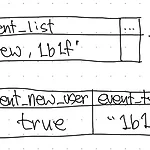 ent_list ...
ew, 1b1f"
ent_new_user event_t
true "1b1